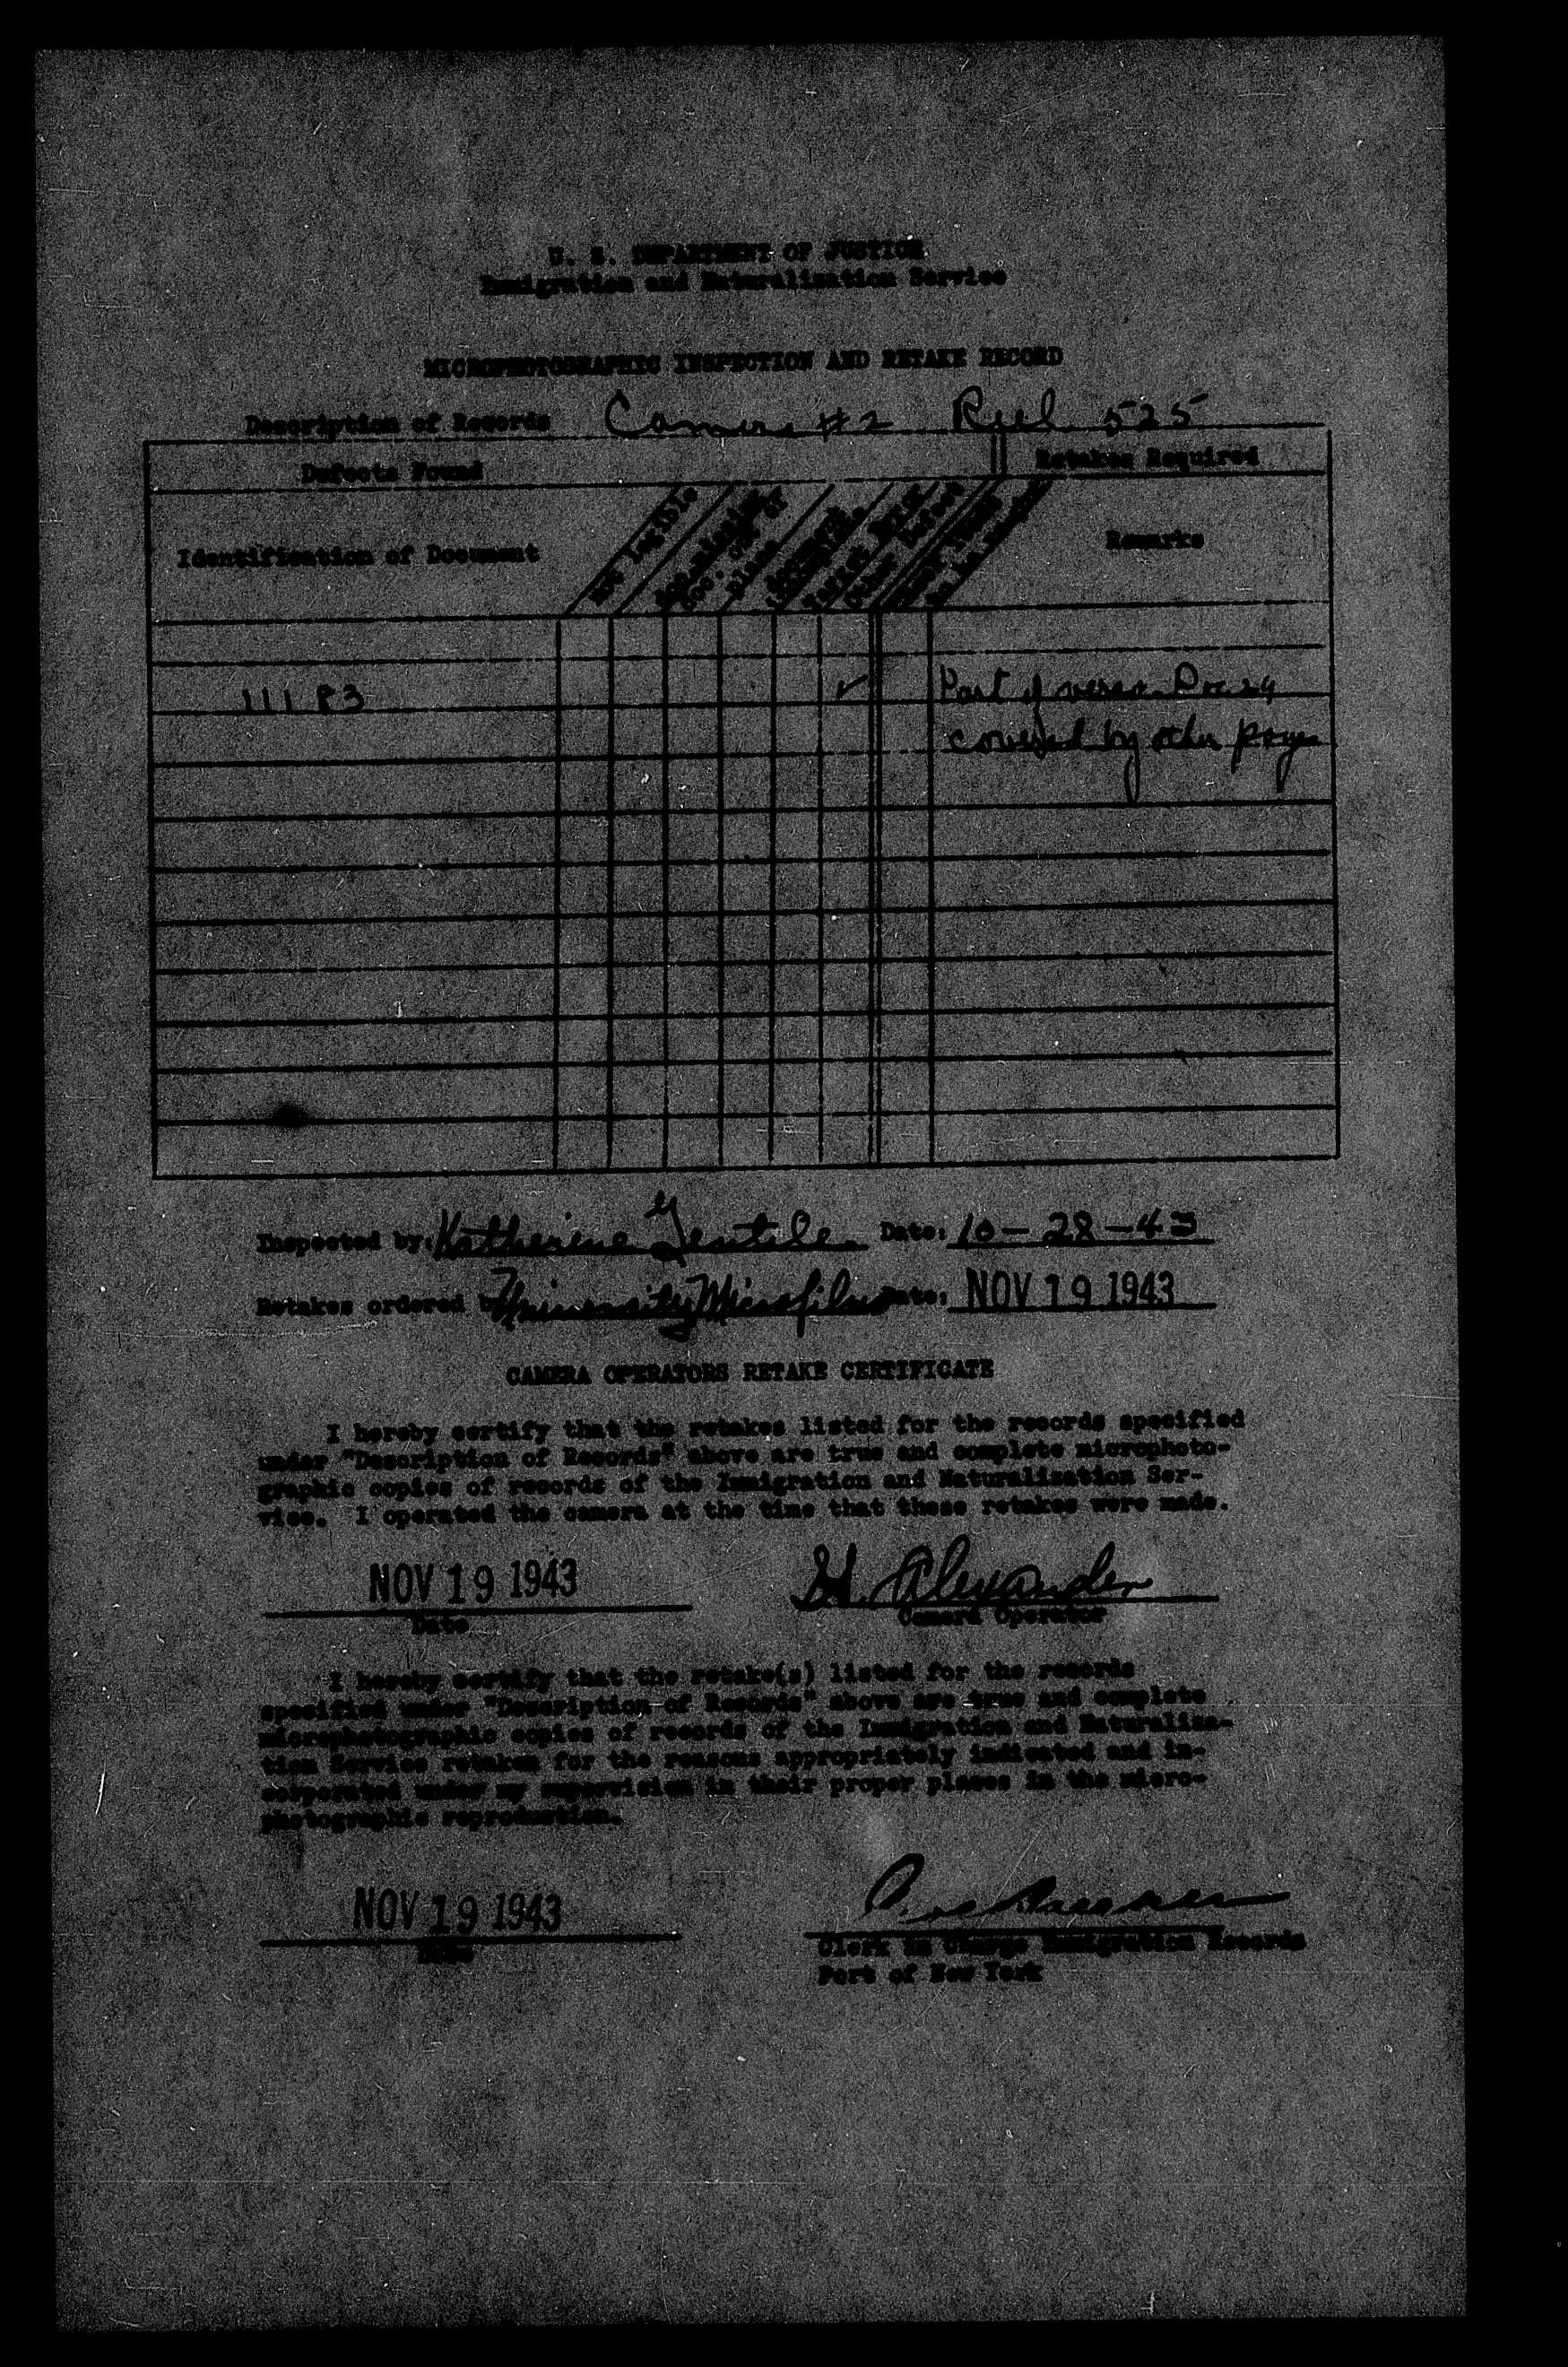 U. S. DEPARTMENT OF JUSTICE
Immigration and Naturalization Service
MICROPHOTOGRAPHIC INSPECTION AND RETAKE RECORD
Description of Records Camera #2 Reel 525
Defects Found Retakes Required
Identification of Document Not Legible Remarks
11183 ✓ Part of verso Doc 24
covered by other page
Inspected by: Katherine Gentile Date: 10-28-43
Retakes ordered by University Microfilms Date: NOV 19 1943
CAMERA OPERATORS RETAKE CERTIFICATE
I hereby certify that the retakes listed for the records specified
under "Description of Records" above are true and complete microphoto-
graphic copies of records of the Immigration and Naturalization Ser-
vice. I operated the camera at the time that these retakes were made.
NOV 19 1943 H. Alexander
Date Camera Operator
I hereby certify that the retake(s) listed for the records
specified under "Description of Records" above are true and complete
microphotographic copies of records of the Immigration and Naturaliza-
tion Service retaken for the reasons appropriately indicated and in-
corporated under my supervision in their proper places in the micro-
photographic reproduction.
NOV 19 1943
Date Clerk in Charge Immigration Records
Port of New York